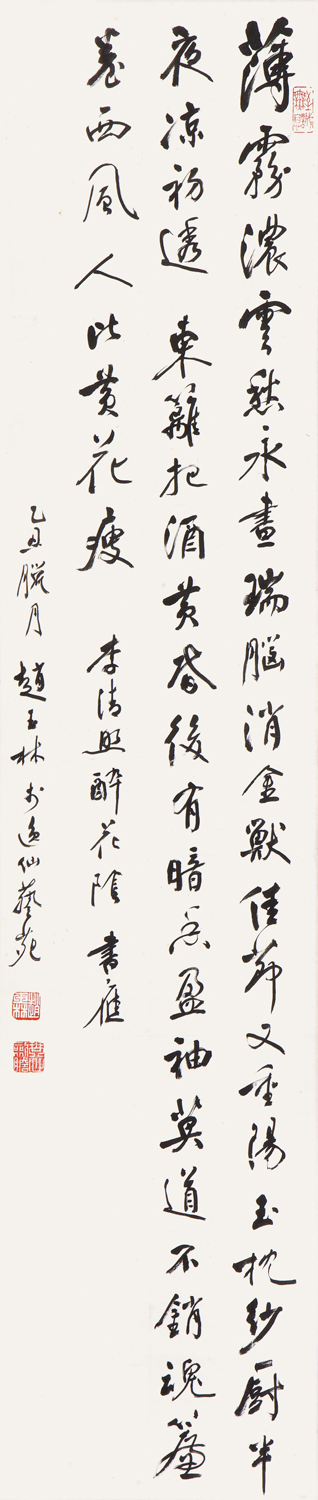 薄霧濃雲愁永晝瑞腦消金獸佳節又重陽玉枕紗厨半
夜凉初透東籬把酒黄昏後有暗香盈袖莫道不銷魂簾
卷西風人比黄花瘦 李清照醉花陰 書應
乙丑臘月趙玉林於逸仙藝苑